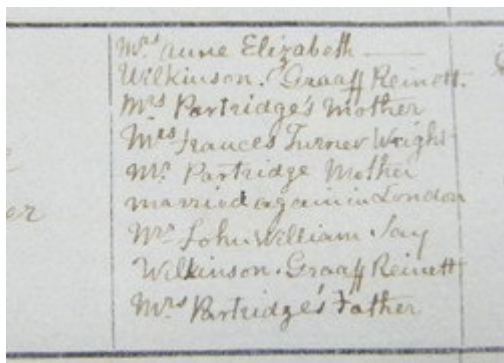 Mrs Anne Elizabeth
Wilkinson. Graaff Reinett.
Mrs Partridge's Mother
Mrs Frances Turner Wright
Mr. Partridge Mother
married again in London
Mr John William Jay
Wilkinson. Graaff Reinett
Mrs Partridge's Father
er